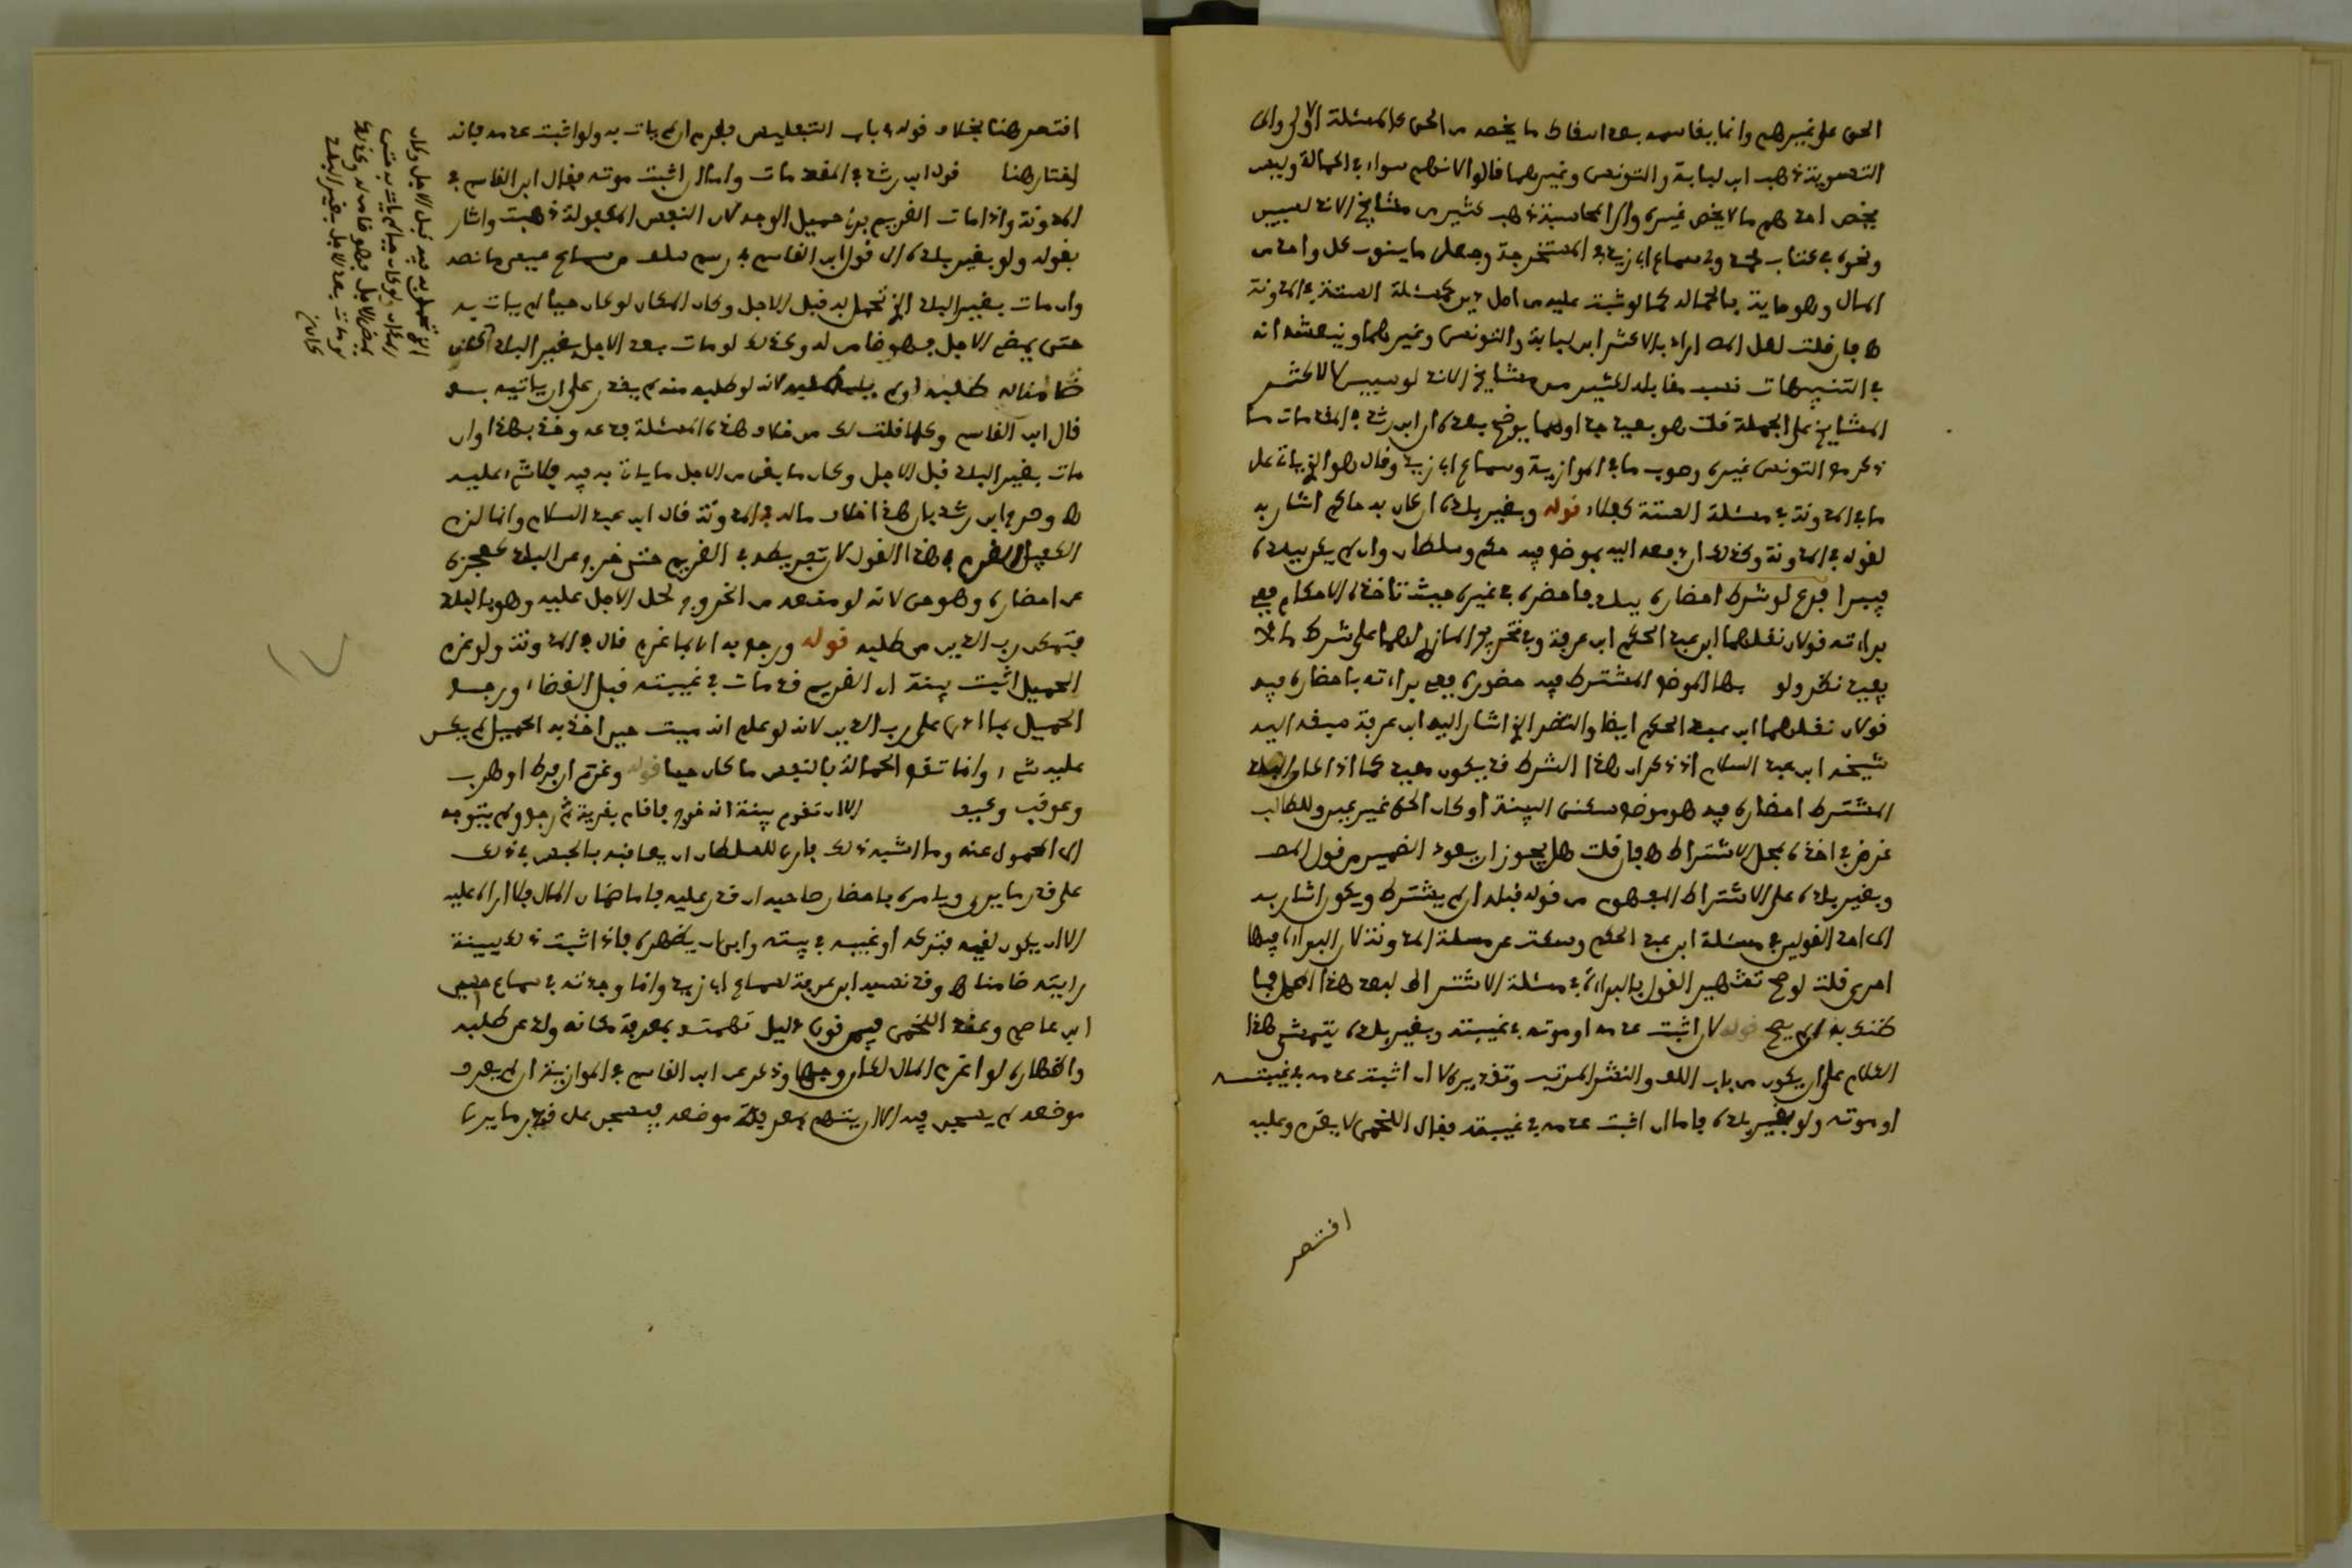 الحق على غيرهم وانما يقاسمه بعد اسقاط ما يخصه من الحق كالمسئلة الاولى والى
التسوية ذهب ابن لبابة والتونسي وغيرهما قالوا لانهم سواء في الحمالة وليس
يخص احدهم ما لا يخص غيره والى المحاسبة ذهب كثير من مشايخ الاندلسيين
ونحوه في كتاب محمد وفي سماع ابي زيد في المستخرجة وجعلوا ما ينوب كل واحد من
المال وهو ما يؤديه بالحمالة كما لو ثبت عليه من اصل دين كمسئلة الستة في المدونة
اه فان قلت لعل المص اراد بالاكثر ابن لبابة والتونسي وغيرهما وينعشه انه
في التنبيهات نسب مقابله لكثير من مشايخ الاندلسيين لا لاكثر
المشايخ على الجملة قلت هو بعيد جدا ومما يوضح بعده ان ابن رشد في المقدمات ما
ذكر من التونسي غيره وصوب ما في الموازية وسماع ابي زيد وقال هو الذي يأتي على
ما في المدونة في مسئلة الستة كفلاء قوله وبغير بلده ان كان به حاكم اشار به
لقوله في المدونة وكذلك ان دفعه اليه بموضع فيه حكم وسلطان وان لم يكن ببلده
فيبرا فرع لو شرط احضاره ببلد فاحضره في غيره حيث تأخذه الاحكام ففي
براءته قولان نقلهما ابن عبد الحكم ابن عرفة وفي تخريج المازري لهما على شرط ما لا
يفيد نظر ولو بهذا الموضع المشترط فيه حضوره ففي براءته باحضاره فيه
قولان نقلهما ابن عبد الحكم ايضا والنظر الذي اشار اليه ابن عرفة سبقه اليه
شيخه ابن عبد السلام اذ ذكر ان هذا الشرط قد يكون مفيدا كما اذا كان البلد
المشترط احضاره فيه هو موضع سكنى البينة او كان الحق غير عين وللطالب
غرض في اخذه بمحل الاشتراط اه فان قلت هل يجوز ان يعود الضمير من قول المص
وبغير بلده على الاشتراط المفهوم من قوله قبله ان لم يشترط ويكون اشار به
الى احد القولين في مسئلة ابن عبد الحكم وسكت عن مسئلة المدونة لان البراءة فيها
احرى قلت لو صح تشهير القول بالبراءة في مسئلة الاشتراط لبعد هذا المحمل فما
ظنك به ان لم يصح قوله لا ان اثبت عدمه او موته في غيبته وبغير بلده يتمشى هذا
الكلام على ان يكون من باب اللف والنشر المرتب وتقديره لا ان اثبت عدمه في غيبته
او موته ولو بغير بلده فاما ان اثبت عدمه في غيبته فقال اللخمي لا يغرم وعليه
اقتصر
اقتصر هنا بخلاف قوله في باب التفليس فغرم ان لم يات به ولو اثبت عدمه فانه
اختار هنا قول ابن رشد في المقدمات واما ان اثبت موته فقال ابن القاسم في
المدونة واذا مات الغريم برئ حميل الوجه لان النفس المكفولة ذهبت واشار
بقوله ولو بغير بلده الى قول ابن القاسم في رسم سلف من سماع عيسى ما نصه
وان مات بغير البلد الذي تحمل به فيه قبل الاجل وكان المكان لو كان حيا لم يات به
حتى يمضي الاجل فهو ضامن له وكذلك لو مات بعد الاجل بغير البلد
ضامنا له طلبه او لم يطلبه لانه لو طلبه منه لم يقدر على ان ياتيه به
قال ابن القاسم وكلما قلت لك من خلاف هذه المسئلة فدعه وخذ بهذا وان
مات بغير البلد قبل الاجل وكان ما بقي من الاجل ما ياتي به فيه فلا شيء عليه
اه وصرح ابن رشد بان هذا خلاف ما له في المدونة قال ابن عبد السلام وانما لزم
الكفيل الغرم في هذا القول لان تفريطه في الغريم حتى خرج من البلد كعجزه
عن احضاره وهو حي لانه لو منعه من الخروج لحل الاجل عليه وهو بالبلد
فيتمكن رب الدين من طلبه قوله ورجع به اي بما غرم قال في المدونة ولو غرم
الحميل اثبت بينة ان الغريم قد مات في غيبته قبل القضاء ورجع
الحميل بما ادى على رب الدين لانه لو علم انه ميت حين اخذ به الحميل لم يكن
عليه شيء وانما تقع الحمالة بالنفس ما كان حيا قوله وغرم ان فرط او هرب
وعوقب الا ان تقوم بينة انه خرج فاقام بقرية ثم رجع ولم يتوجه
الى المحمول عنه وما اشبه ذلك فارى للسلطان ان يعاقبه بالحبس في ذلك
على قدر ما يرى ويامره باحضار صاحبه ان قدر عليه فاما ضمان المال فلا اراه عليه
الا ان يكون لقيه فتركه او غيبه في بيته وابى ان يظهره فاذا اثبت ذلك ببينة
رايته ضامنا اه وقد نسبه ابن عرفة لسماع ابي زيد وانما وجدته في سماع حسين
ابن عاصم وعند اللخمي فيمن قويت دليل تهمته بمعرفة مكانه ولد عن طلبه
واظهاره لو اغرم المال لكان وجها وذكر عن ابن القاسم في الموازية ان لم يعرف
موضعه لم يسجن فيه الا ان يتهم بمعرفة موضعه فيسجن على قدر ما يرى
الذي تحمل به فيه قبل الاجل وكان
المكان لو كان حيا لم يات به حتى
يمضي الاجل فهو ضامن له وكذلك
لو مات بعد الاجل بغير البلد
كان